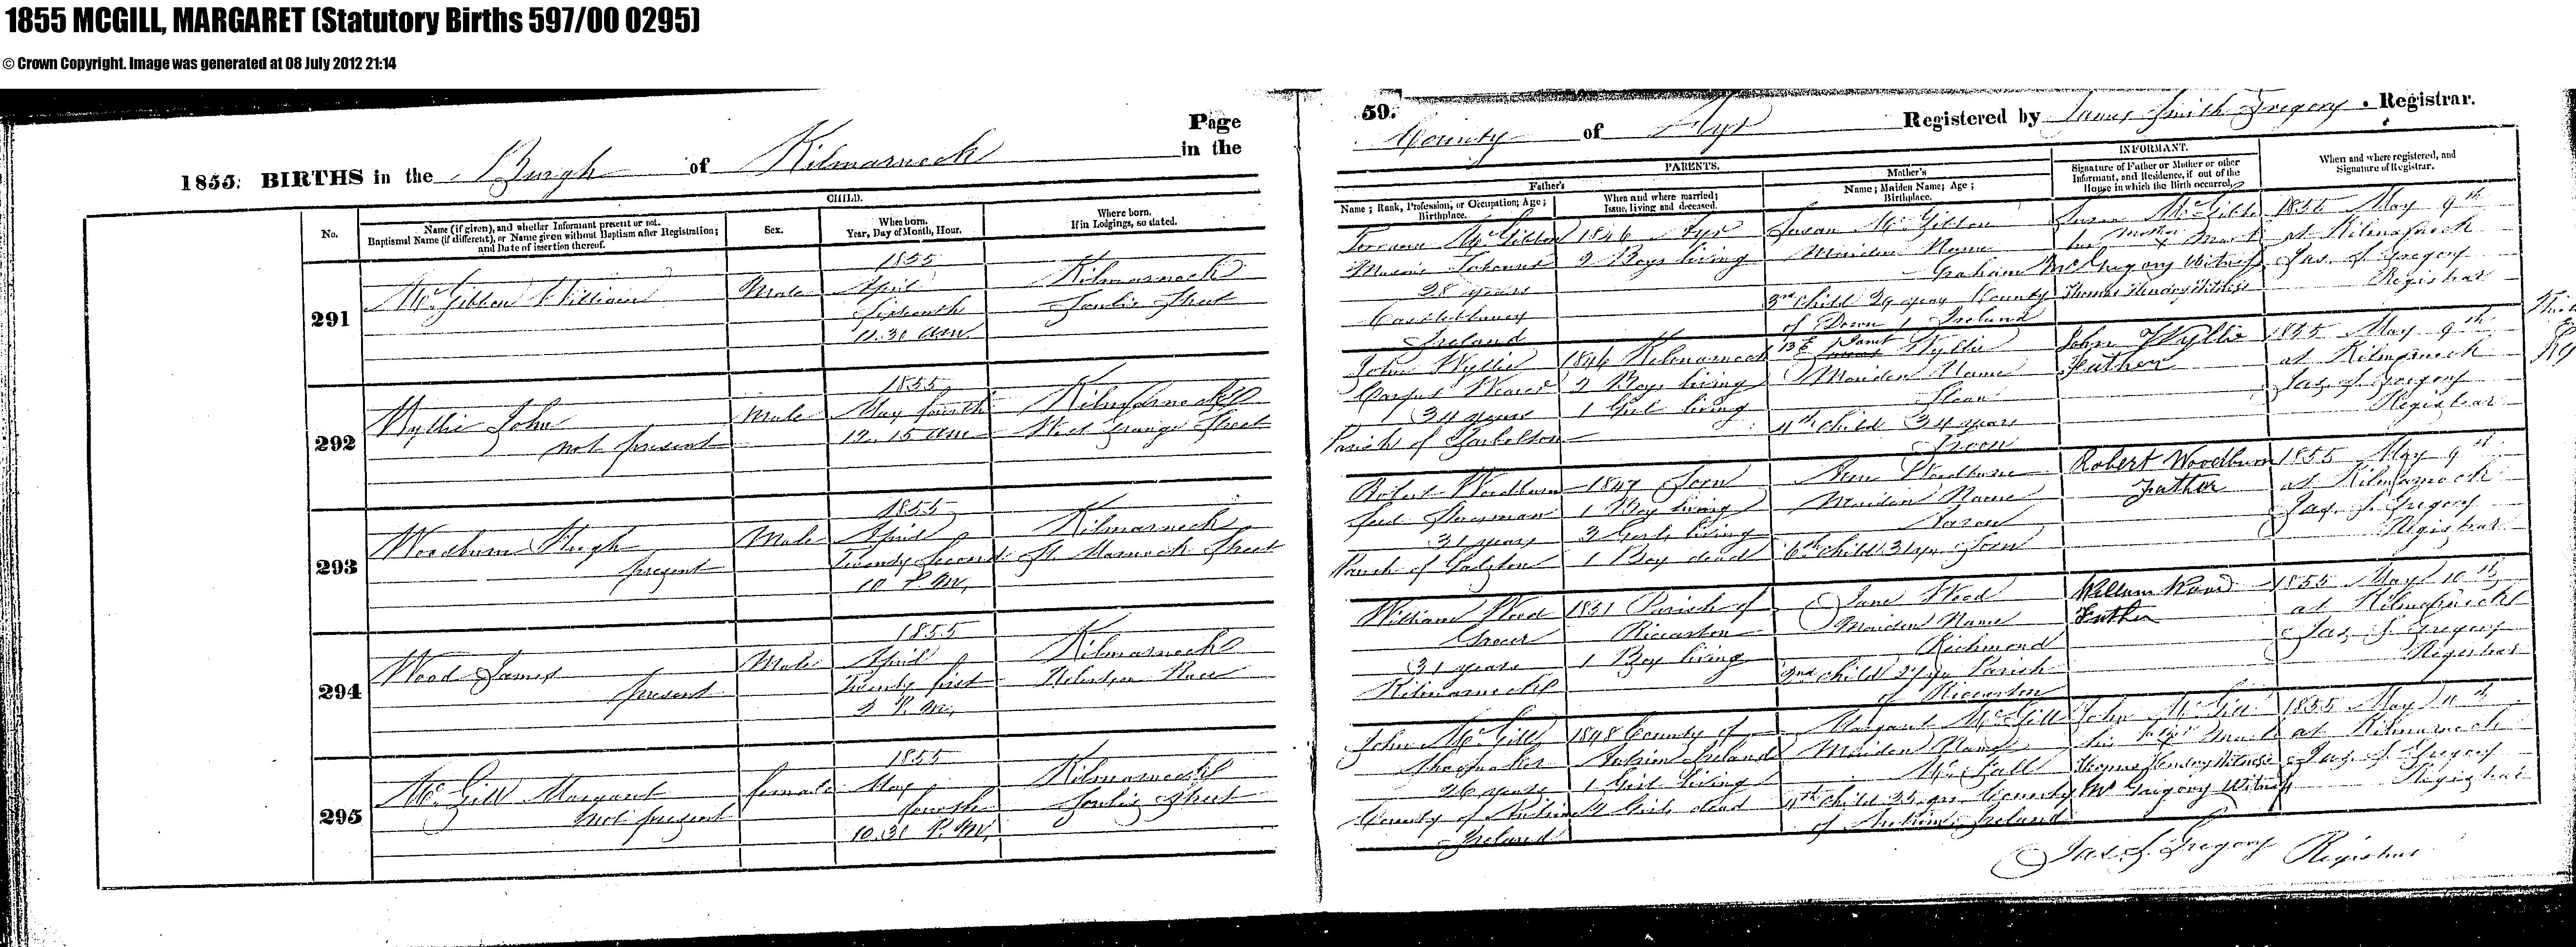 1855 MCGILL, MARGARET (Statutory Births 597/00 0295)
© Crown Copyright. Image was generated at 08 July 2012 21:14
1855: BIRTHS in the Burgh of Kilmarnock
Page
in the
59.
County of Ayr
Registered by James Smith Gregory . Registrar.
CHILD.
PARENTS.
INFORMANT.
No.
Name (if given), and whether Informant present or not.
Baptismal Name (if different), or Name given without Baptism after Registration;
and Date of insertion thereof.
Sex.
When born.
Year, Day of Month, Hour.
Where born.
If in Lodgings, so stated.
Father's
Name; Rank, Profession, or Occupation; Age;
Birthplace.
When and where married;
Issue, living and deceased.
Mother's
Name; Maiden Name; Age;
Birthplace.
Signature of Father or Mother or other
Informant, and Residence, if out of the
House in which the Birth occurred,
When and where registered, and
Signature of Registrar.
291
McGibbon William
Male
1855
April
Sixteenth
11.30 am
Kilmarnock
Soulis Street
McGibbon
28 years
Ireland
1846 Ayr
2 Boys living
Susan McGibbon
Maiden Name
Graham
3rd child 29 years County
of Down, Ireland
Susan McGibbon
mother
her x mark
McGregory Witness
Thomas Hendry Witness
1855 May 9th
at Kilmarnock
Jas. S. Gregory
Registrar
292
Wyllie John
not present
Male
1855
May fourth
12. 15 am
Kilmarnock
West Grange Street
John Wyllie
Carpet Weaver
34 years
Parish of Tarbolton
1846 Kilmarnock
2 Boys living
1 Girl living
Janet
Wyllie
Maiden Name
4th child 34 years
Troon
John Wyllie
Father
1855 May 9th
at Kilmarnock
Jas. S. Gregory
Registrar
293
Woodburn Hugh
present
Male
1855
April
Twenty Second
10 P.M.
Kilmarnock
St. Marnock Street
Robert Woodburn
31 years
Parish of Galston
1847
1 Boy living
3 Girls living
1 Boy dead
Woodburn
Maiden Name
6th child 31 yrs
Robert Woodburn
Father
1855 May 9th
at Kilmarnock
Jas. S. Gregory
Registrar
294
Wood James
present
Male
1855
April
Twenty first
3 P.M.
Kilmarnock
Robertson Place
William Wood
Grocer
31 years
Kilmarnock
1851 Parish of
Riccarton
1 Boy living
Jane Wood
Maiden Name
Richmond
2nd child 27 yrs Parish
of Riccarton
William Wood
Father
1855 May 10th
at Kilmarnock
Jas. S. Gregory
Registrar
295
McGill Margaret
not present
female
1855
May
fourth
10.30 P.M.
Kilmarnock
Soulis Street
John McGill
Shoemaker
26 years
County of Antrim
Ireland
1848 County of
Antrim Ireland
1 Girl living
2 Girls dead
Margaret McGill
Maiden Name
McFall
4th child 25 yrs County
of Antrim Ireland
John McGill
his father x mark
Thomas Hendry Witness
McGregory Witness
1855 May 11th
at Kilmarnock
Jas. S. Gregory
Registrar
Jas. S. Gregory Registrar